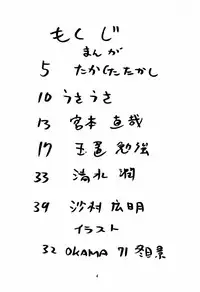 もくじ
まんが
5 たかしたたかし
10 うさうさ
13 宮本直哉
17 玉置勉強
33 清水潤
39 沙村広明
イラスト
32 OKAMA 71 冬目景
4